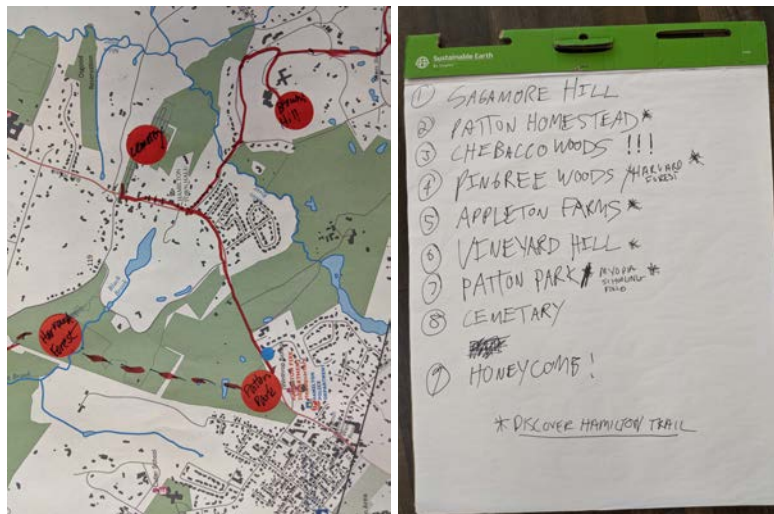 Cemetery
Brown's
Hill
TOWN HALL
119
Black
Brook
Harvard
Forest
Patton
Park
POLICE
DEPARTMENT
Sustainable Earth
① SAGAMORE HILL
② PATTON HOMESTEAD*
③ CHEBACCO WOODS !!!
④ PINGREE WOODS / HARVARD FOREST *
⑤ APPLETON FARMS *
⑥ VINEYARD HILL *
⑦ PATTON PARK MYOPIA SCHOOLING FIELD *
⑧ CEMETARY
⑨ HONEYCOMB !
* DISCOVER HAMILTON TRAIL